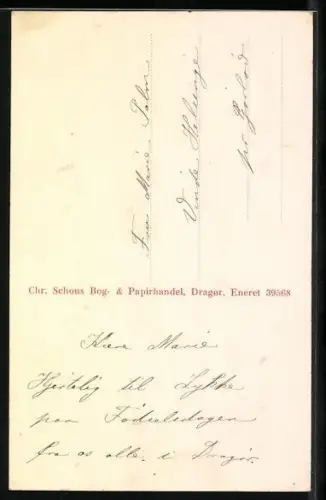 Fru Marie Palm
Vinde Helsinge
pr Gørlev
Chr. Schous Bog- & Papirhandel, Dragør. Eneret 39568
Kære Marie
Hjertelig til Lykke
paa Fødselsdagen
fra os alle i Dragør.